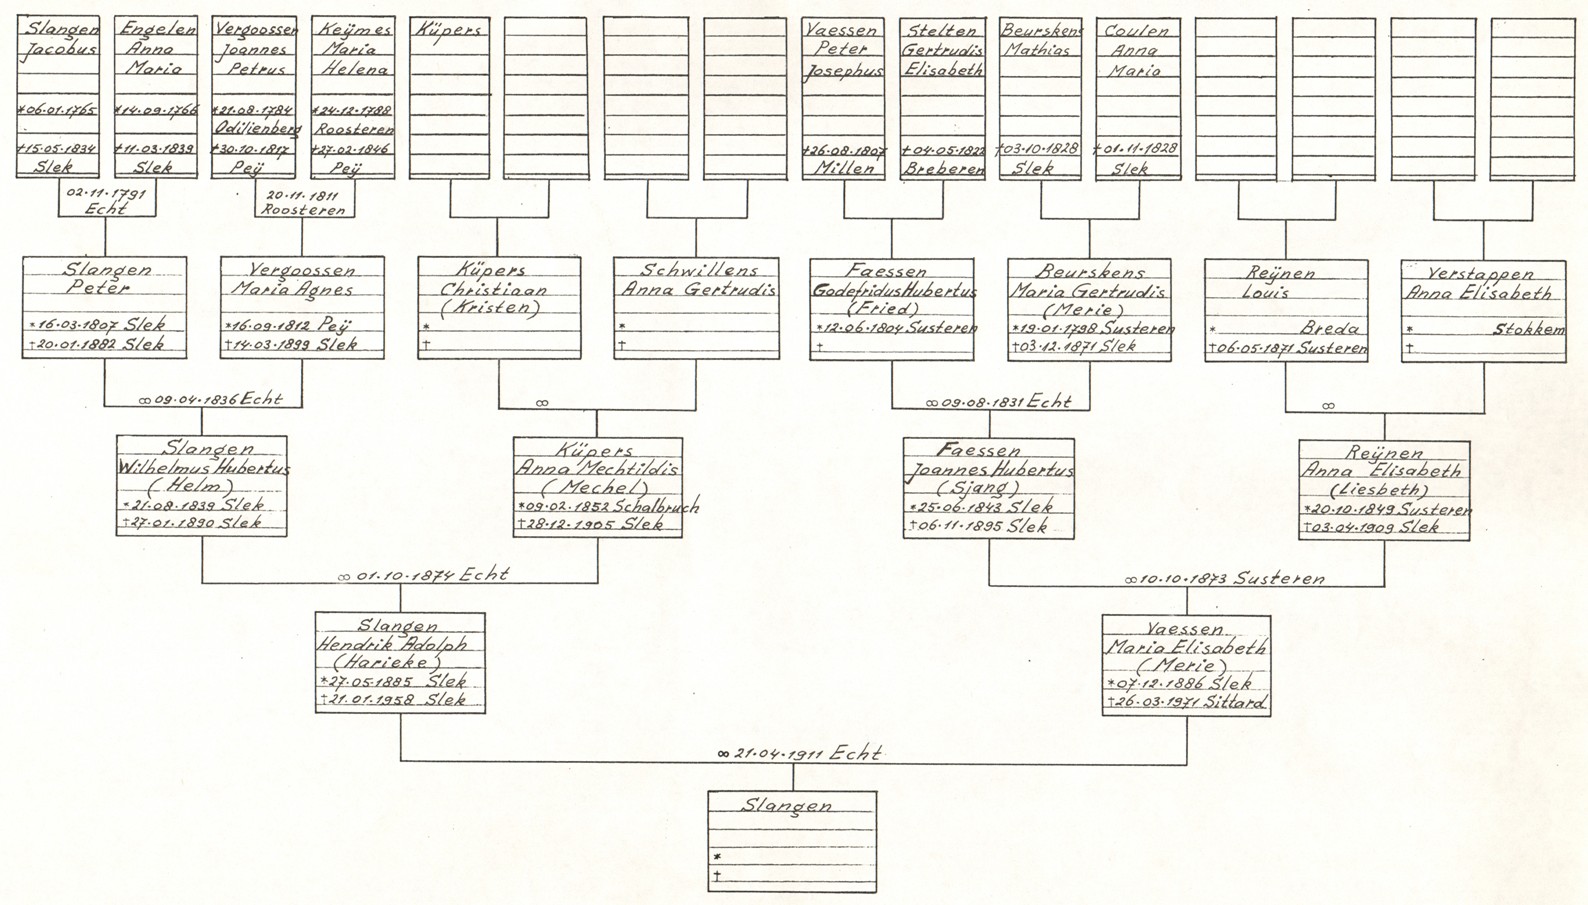 Slangen
Jacobus
*06.01.1765
†15.05.1834
Slek
Engelen
Anna
Maria
*14.09.1766
†11.03.1839
Slek
Vergoossen
Joannes
Petrus
*21.08.1784
Odiliënberg
†30.10.1817
Peÿ
Keÿmes
Maria
Helena
*24.12.1788
Roosteren
†27.02.1846
Peÿ
Küpers
Vaessen
Peter
Josephus
†26.08.1807
Millen
Stelten
Gertrudis
Elisabeth
†04.05.1822
Breberen
Beurskens
Mathias
†03.10.1828
Slek
Coulen
Anna
Maria
†01.11.1828
Slek
02.11.1791
Echt
20.11.1811
Roosteren
Slangen
Peter
*16.03.1807 Slek
†20.01.1882 Slek
Vergoossen
Maria Agnes
*16.09.1812 Peÿ
†14.03.1899 Slek
Küpers
Christiaan
(Kristen)
*
†
Schwillens
Anna Gertrudis
*
†
Faessen
Godefridus Hubertus
(Fried)
*12.06.1804 Susteren
†
Beurskens
Maria Gertrudis
(Merie)
*19.01.1798 Susteren
†03.12.1871 Slek
Reÿnen
Louis
* Breda
†06.05.1871 Susteren
Verstappen
Anna Elisabeth
* Stokkem
†
∞ 09.04.1836 Echt
∞
∞ 09.08.1831 Echt
∞
Slangen
Wilhelmus Hubertus
(Helm)
*21.08.1839 Slek
†27.01.1890 Slek
Küpers
Anna Mechtildis
(Mechel)
*09.02.1852 Schalbruch
†28.12.1905 Slek
Faessen
Joannes Hubertus
(Sjang)
*25.06.1843 Slek
†06.11.1895 Slek
Reÿnen
Anna Elisabeth
(Liesbeth)
*20.10.1849 Susteren
†03.04.1909 Slek
∞ 01.10.1874 Echt
∞ 10.10.1873 Susteren
Slangen
Hendrik Adolph
(Harieke)
*27.05.1885 Slek
†21.01.1958 Slek
Vaessen
Maria Elisabeth
(Merie)
*07.12.1886 Slek
†26.03.1971 Sittard
∞ 21.04.1911 Echt
Slangen
*
†